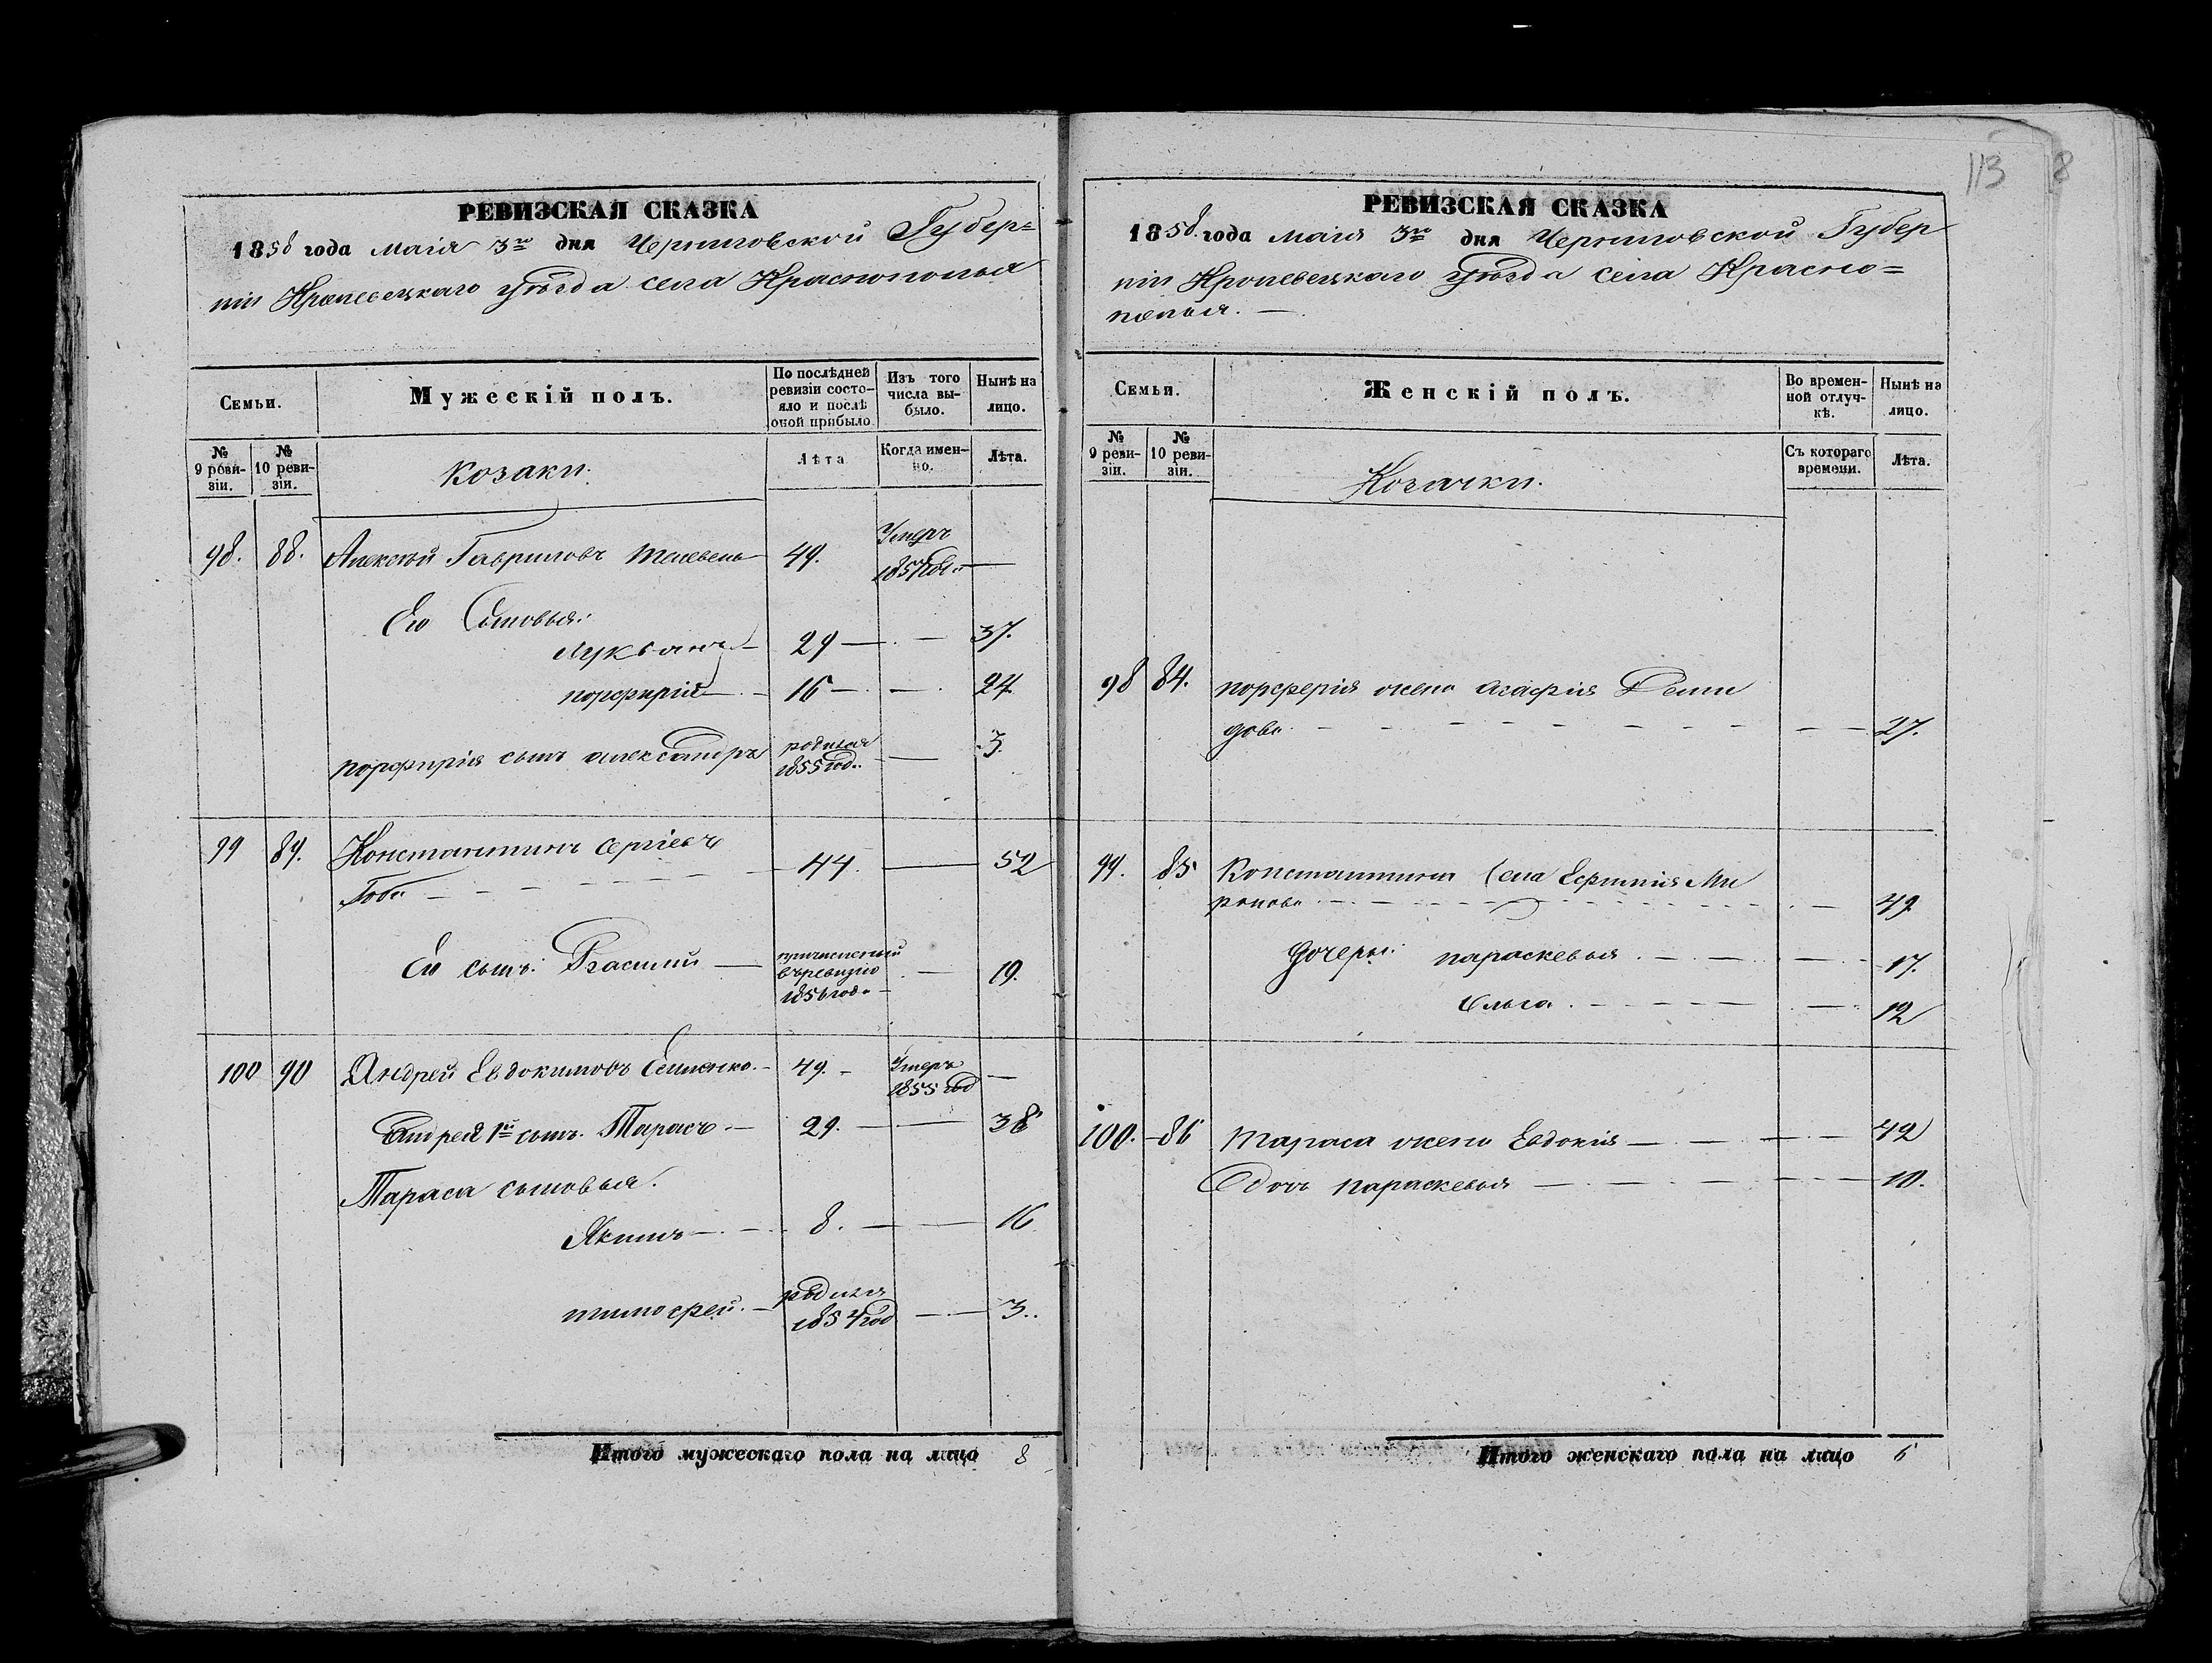 113
8
РЕВИЗСКАЯ СКАЗКА
1858 года маія 3го дня Черниговской Губер=
ніи Кролевецкаго уѣзда села Краснополья
Семьи.
Мужескій полъ.
По послѣдней ревизіи состо-
яло и послѣ
оной прибыло
Изъ того
числа вы-
было.
Нынѣ на
лицо.
№
9 реви-
зіи.
№
10 реви-
зіи.
козаки.
Лѣта
Когда имен-
но.
Лѣта.
98. 88. Алексѣй Гавриловъ 49. Умеръ 1857 года —
Его Сыновья:
Лукьянъ — 29 — — 37.
порфирій — 16 — — 24
порфирія сынъ александръ родился 1855 год. — 3.
99 89. Константинъ Сергіевъ
44. — 52
Его сынъ: Василий — 1856 год. — 19.
100 90 Андрей Евдокимовъ 49. — Умеръ 1855 год —
Андрея 1й сынъ. Тарасъ — 29. — — 38
Тараса сыновья.
Якимъ — 8. — — 16
тимофей. — родился 1854 год — 3..
Итого мужескаго пола на лицо 8
РЕВИЗСКАЯ СКАЗКА
1858. года маія 3го дня Черниговской Губер
ніи Кролевецкаго уѣзда села Красно=
полья. —
Семьи.
Женскій полъ.
Во времен-
ной отлуч-
кѣ.
Нынѣ на
лицо.
№
9 реви-
зіи.
№
10 реви-
зіи.
Козачки.
Съ котораго
времени.
Лѣта.
98 84. порферія жена агафія Деми
дова. — — 27.
99. 85 Константина жена Ефимія Ми
ронова — — 49
дочеры: параскевья — — 17.
Ольга. — — 12
100. 86 Тараса жена Евдокія — — 42
дочь параскевья — — 10.
Итого женскаго пола на лицо 6